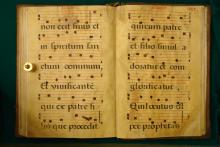 non erit finis et
in spiritum san
ctum dominum,
et vivificante
qui ex patre fi
lioque procedit
qui cum patre
et filio simul a
doratur et con
glorificatur,
Qui locutus est
per prophetas